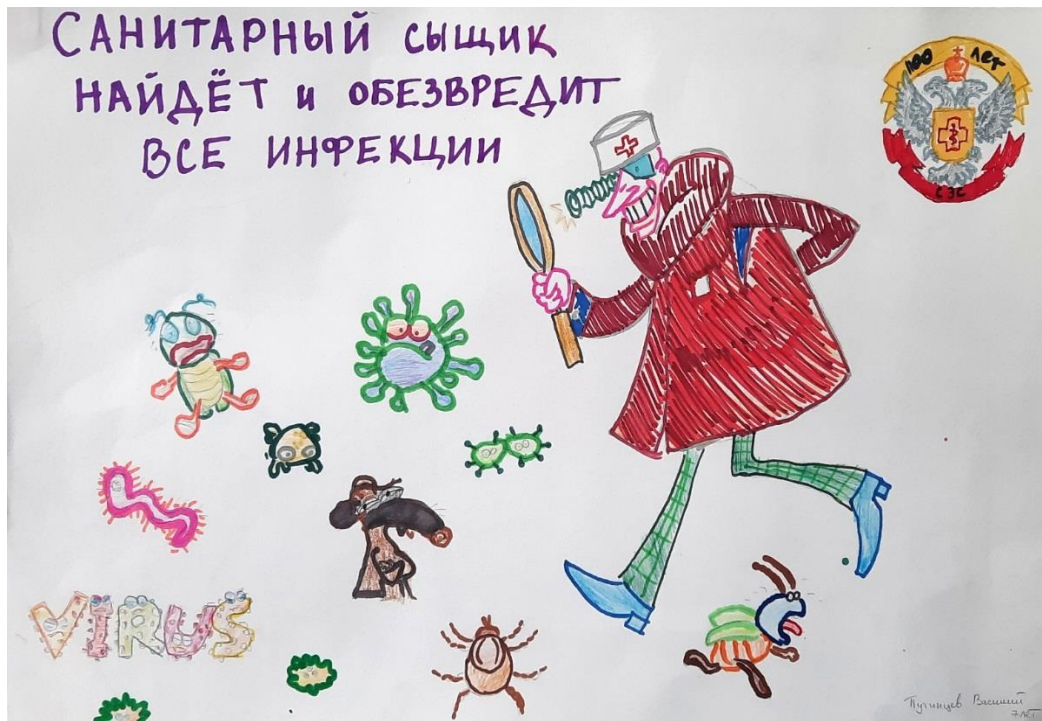 САНИТАРНЫЙ СЫЩИК
НАЙДЁТ и ОБЕЗВРЕДИТ
ВСЕ ИНФЕКЦИИ
100 лет
СЭС
VIRUS
Путинцев Василий
7 лет